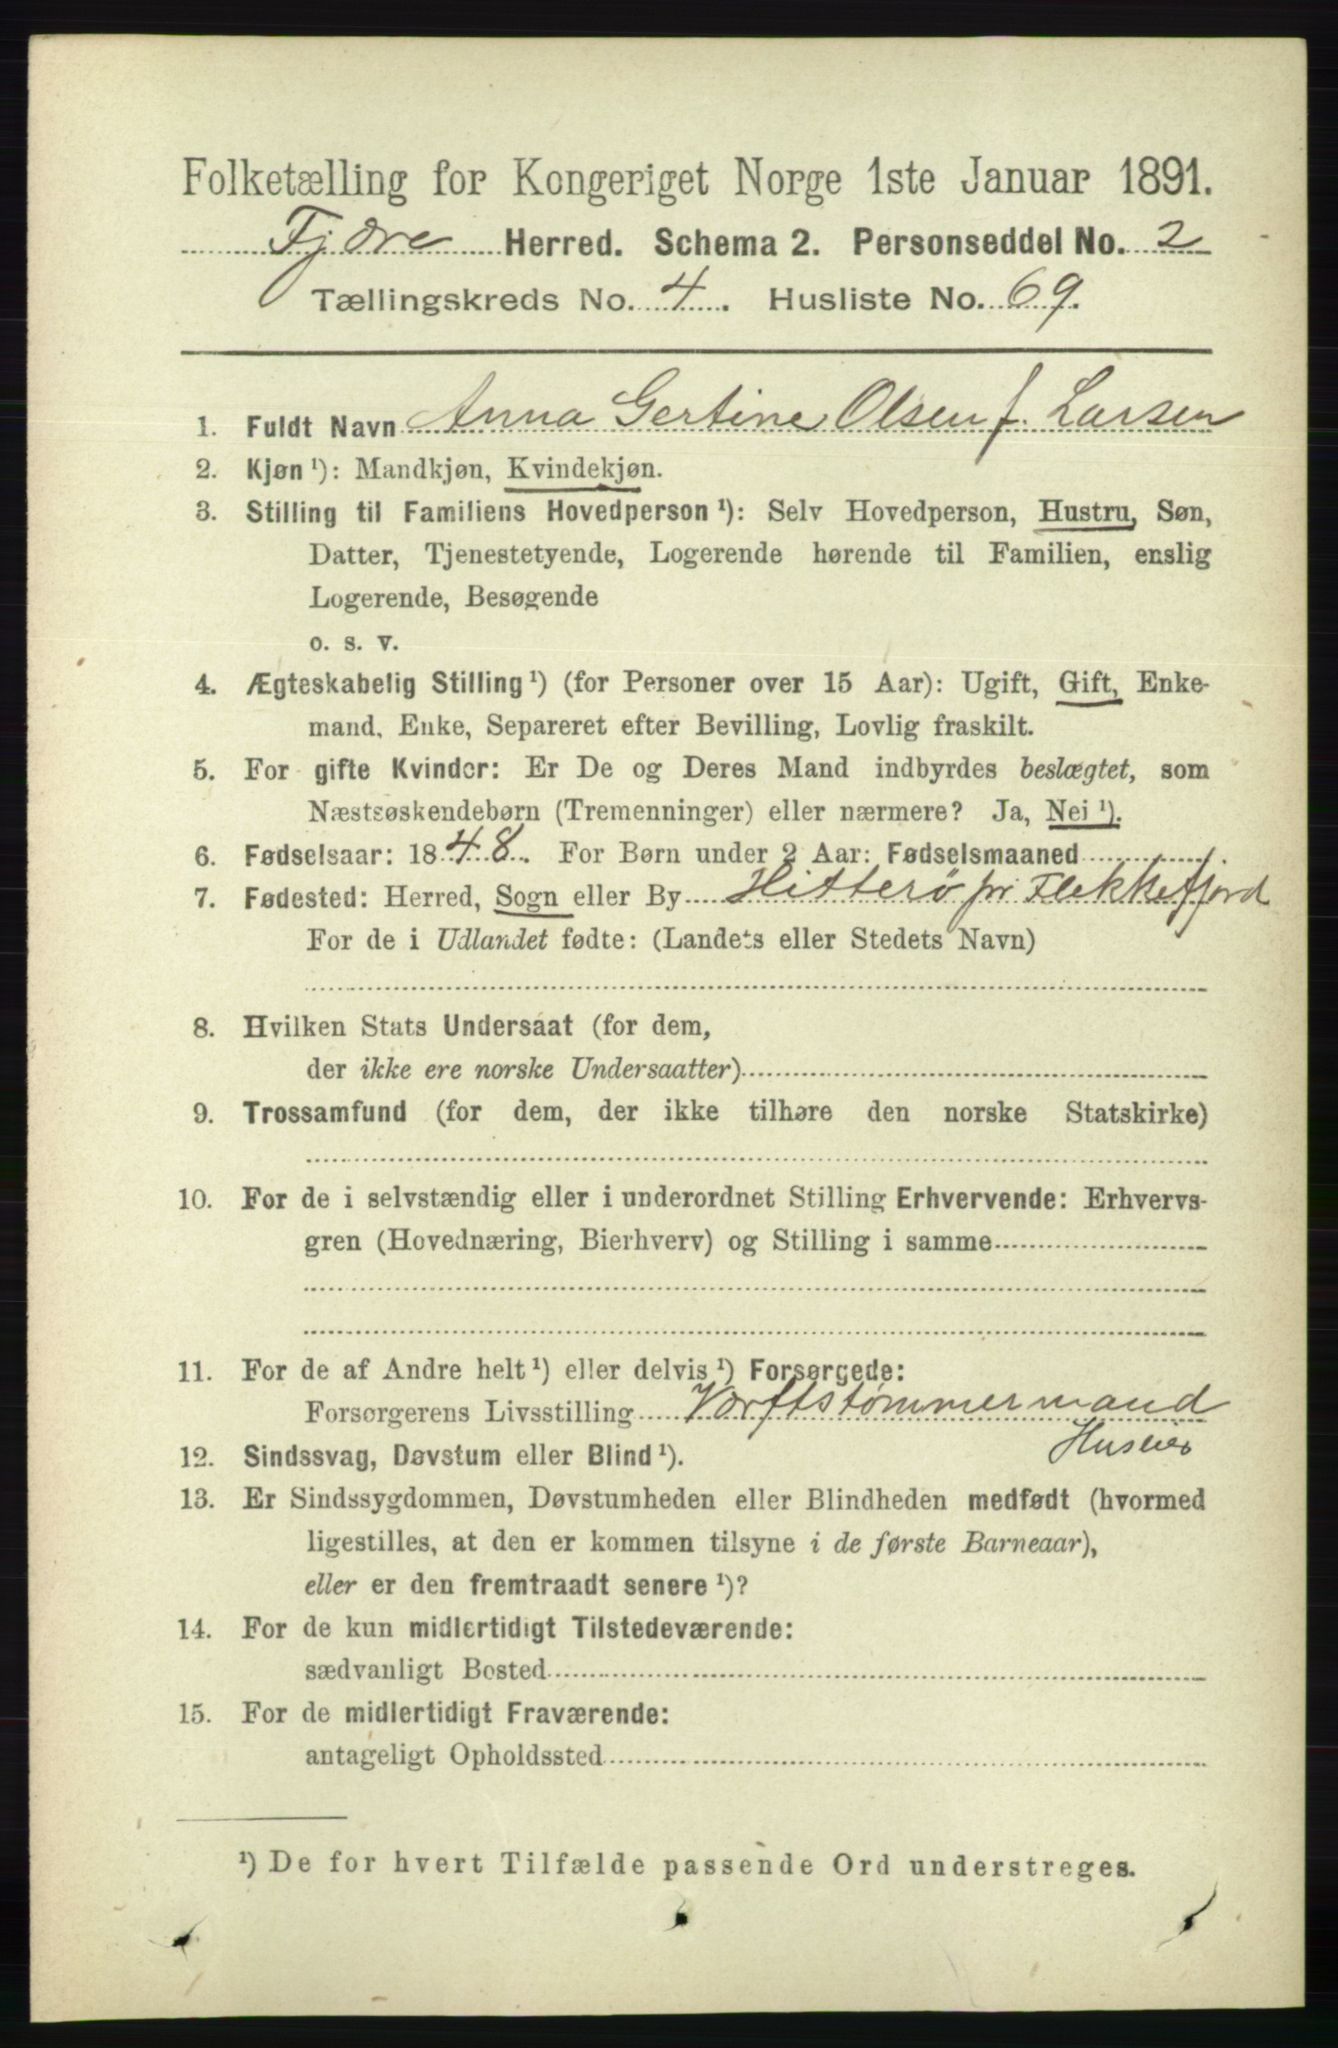 Folketælling for Kongeriget Norge 1ste Januar 1891.
Fjære Herred. Schema 2. Personseddel No. 2
Tællingskreds No. 4. Husliste No. 69.
1. Fuldt Navn Anna Gertine Olsen f. Larsen
2. Kjøn ¹): Mandkjøn, Kvindekjøn.
3. Stilling til Familiens Hovedperson ¹): Selv Hovedperson, Hustru, Søn,
Datter, Tjenestetyende, Logerende hørende til Familien, enslig
Logerende, Besøgende
o. s. v.
4. Ægteskabelig Stilling ¹) (for Personer over 15 Aar): Ugift, Gift, Enke-
mand, Enke, Separeret efter Bevilling, Lovlig fraskilt.
5. For gifte Kvinder: Er De og Deres Mand indbyrdes beslægtet, som
Næstsøskendebørn (Tremenninger) eller nærmere? Ja, Nei ¹).
6. Fødselsaar: 1848. For Børn under 2 Aar: Fødselsmaaned
7. Fødested: Herred, Sogn eller By Hitterö pr Flekkefjord
For de i Udlandet fødte: (Landets eller Stedets Navn)
8. Hvilken Stats Undersaat (for dem,
der ikke ere norske Undersaatter)
9. Trossamfund (for dem, der ikke tilhøre den norske Statskirke)
10. For de i selvstændig eller i underordnet Stilling Erhvervende: Erhvervs-
gren (Hovednæring, Bierhverv) og Stilling i samme
11. For de af Andre helt ¹) eller delvis ¹) Forsørgede:
Forsørgerens Livsstilling Værftstømmermand
Huseier
12. Sindssvag, Døvstum eller Blind ¹).
13. Er Sindssygdommen, Døvstumheden eller Blindheden medfødt (hvormed
ligestilles, at den er kommen tilsyne i de første Barneaar),
eller er den fremtraadt senere ¹)?
14. For de kun midlertidigt Tilstedeværende:
sædvanligt Bosted
15. For de midlertidigt Fraværende:
antageligt Opholdssted
¹) De for hvert Tilfælde passende Ord understreges.